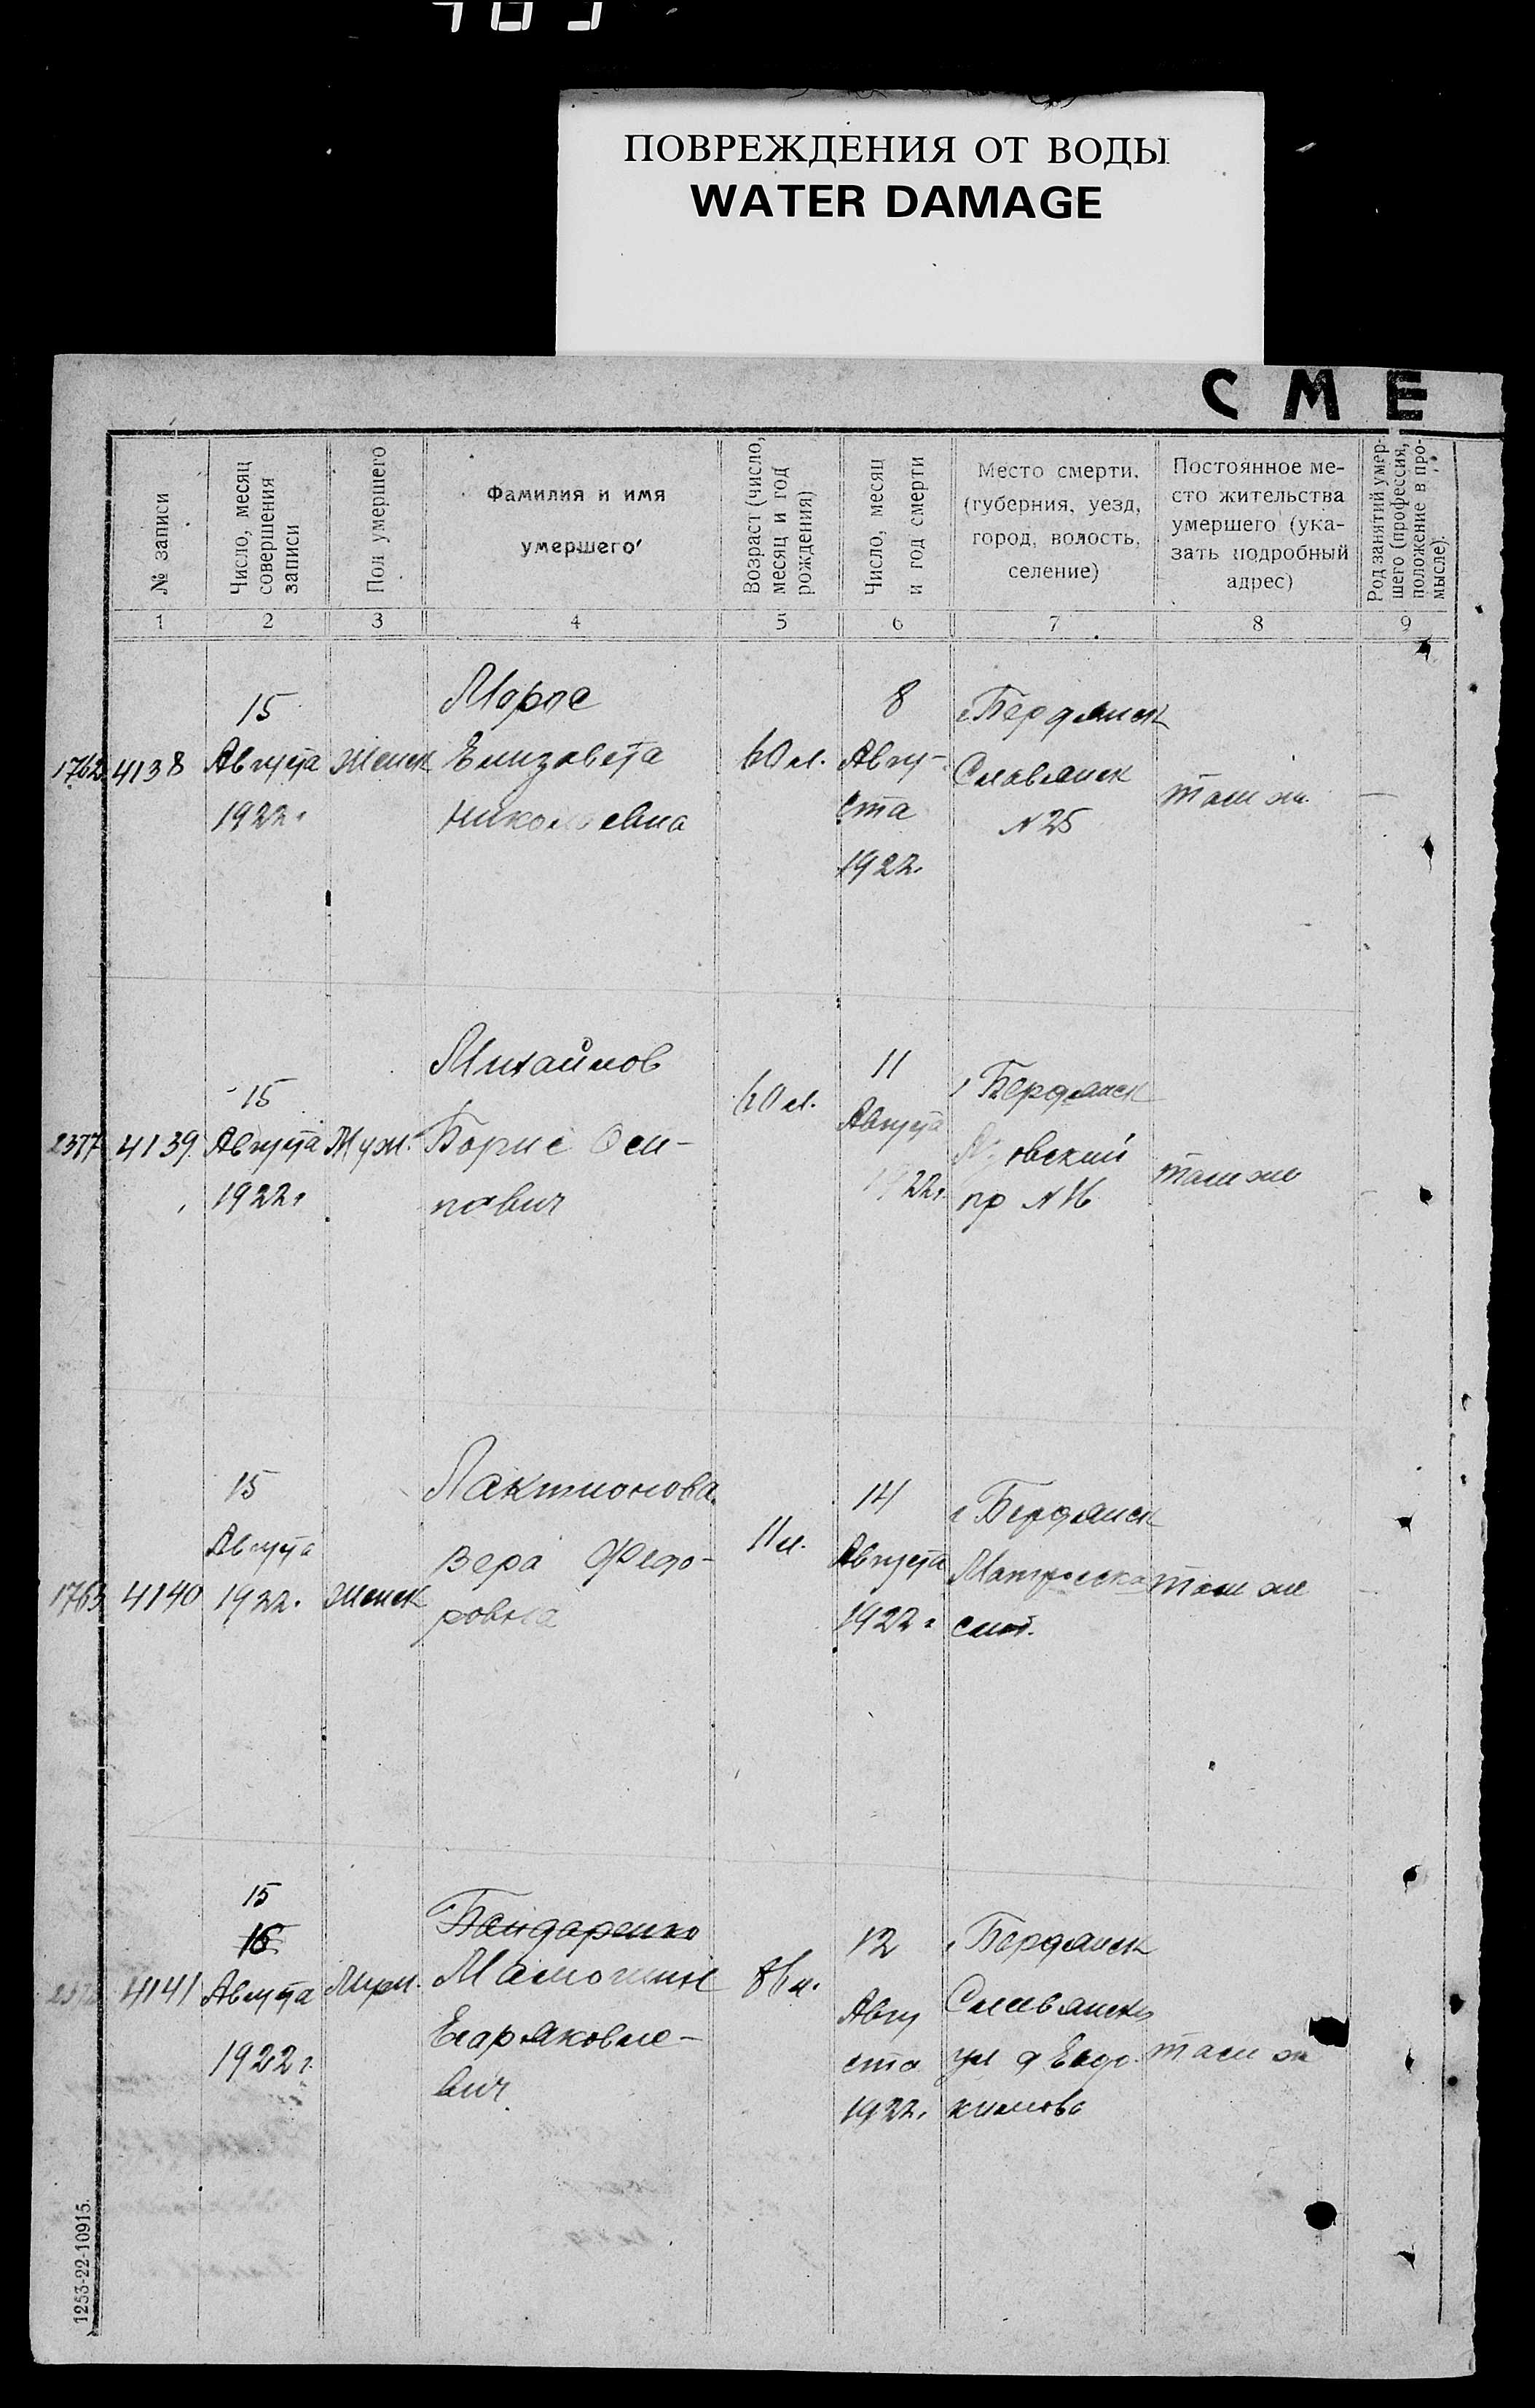 ПОВРЕЖДЕНИЯ ОТ ВОДЫ
WATER DAMAGE
СМЕ
№ записи
Число, месяц
совершения
записи
Пол умершего
Фамилия и имя
умершего
Возраст (число,
месяц и год
рождения)
Число, месяц
и год смерти
Место смерти.
(губерния, уезд,
город, волость,
селение)
Постоянное ме-
сто жительства
умершего (ука-
зать подробный
адрес)
Род занятий умер-
шего (профессия,
положение в про-
мысле).
1 2 3 4 5 6 7 8 9
1762 4138
15
Августа
1922г
Женск
Мороз
Елизавета
Николаевна
60 л.
8
Авгу-
ста
1922.
г Бердянск
Славянск
N 25
там же
2377 4139
15
Августа
1922г
Муж.
Михайлов
Борис Оси-
пович
60 л.
11
Августа
1922г.
г Бердянск
пр N 16
там же
1763 4140
15
Августа
1922.
Женск
Лактионова
Вера Федо-
ровна
11 л.
14
Августа
1922г
г Бердянск
там же
4141
15
16
Августа
1922г.
Бондаренко
Мамошин
Егор Яковле-
вич
12
Авгу
ста
1922.
г Бердянск
Славянск
ул д Евдо-
кимова
там же
1253-22-10915.